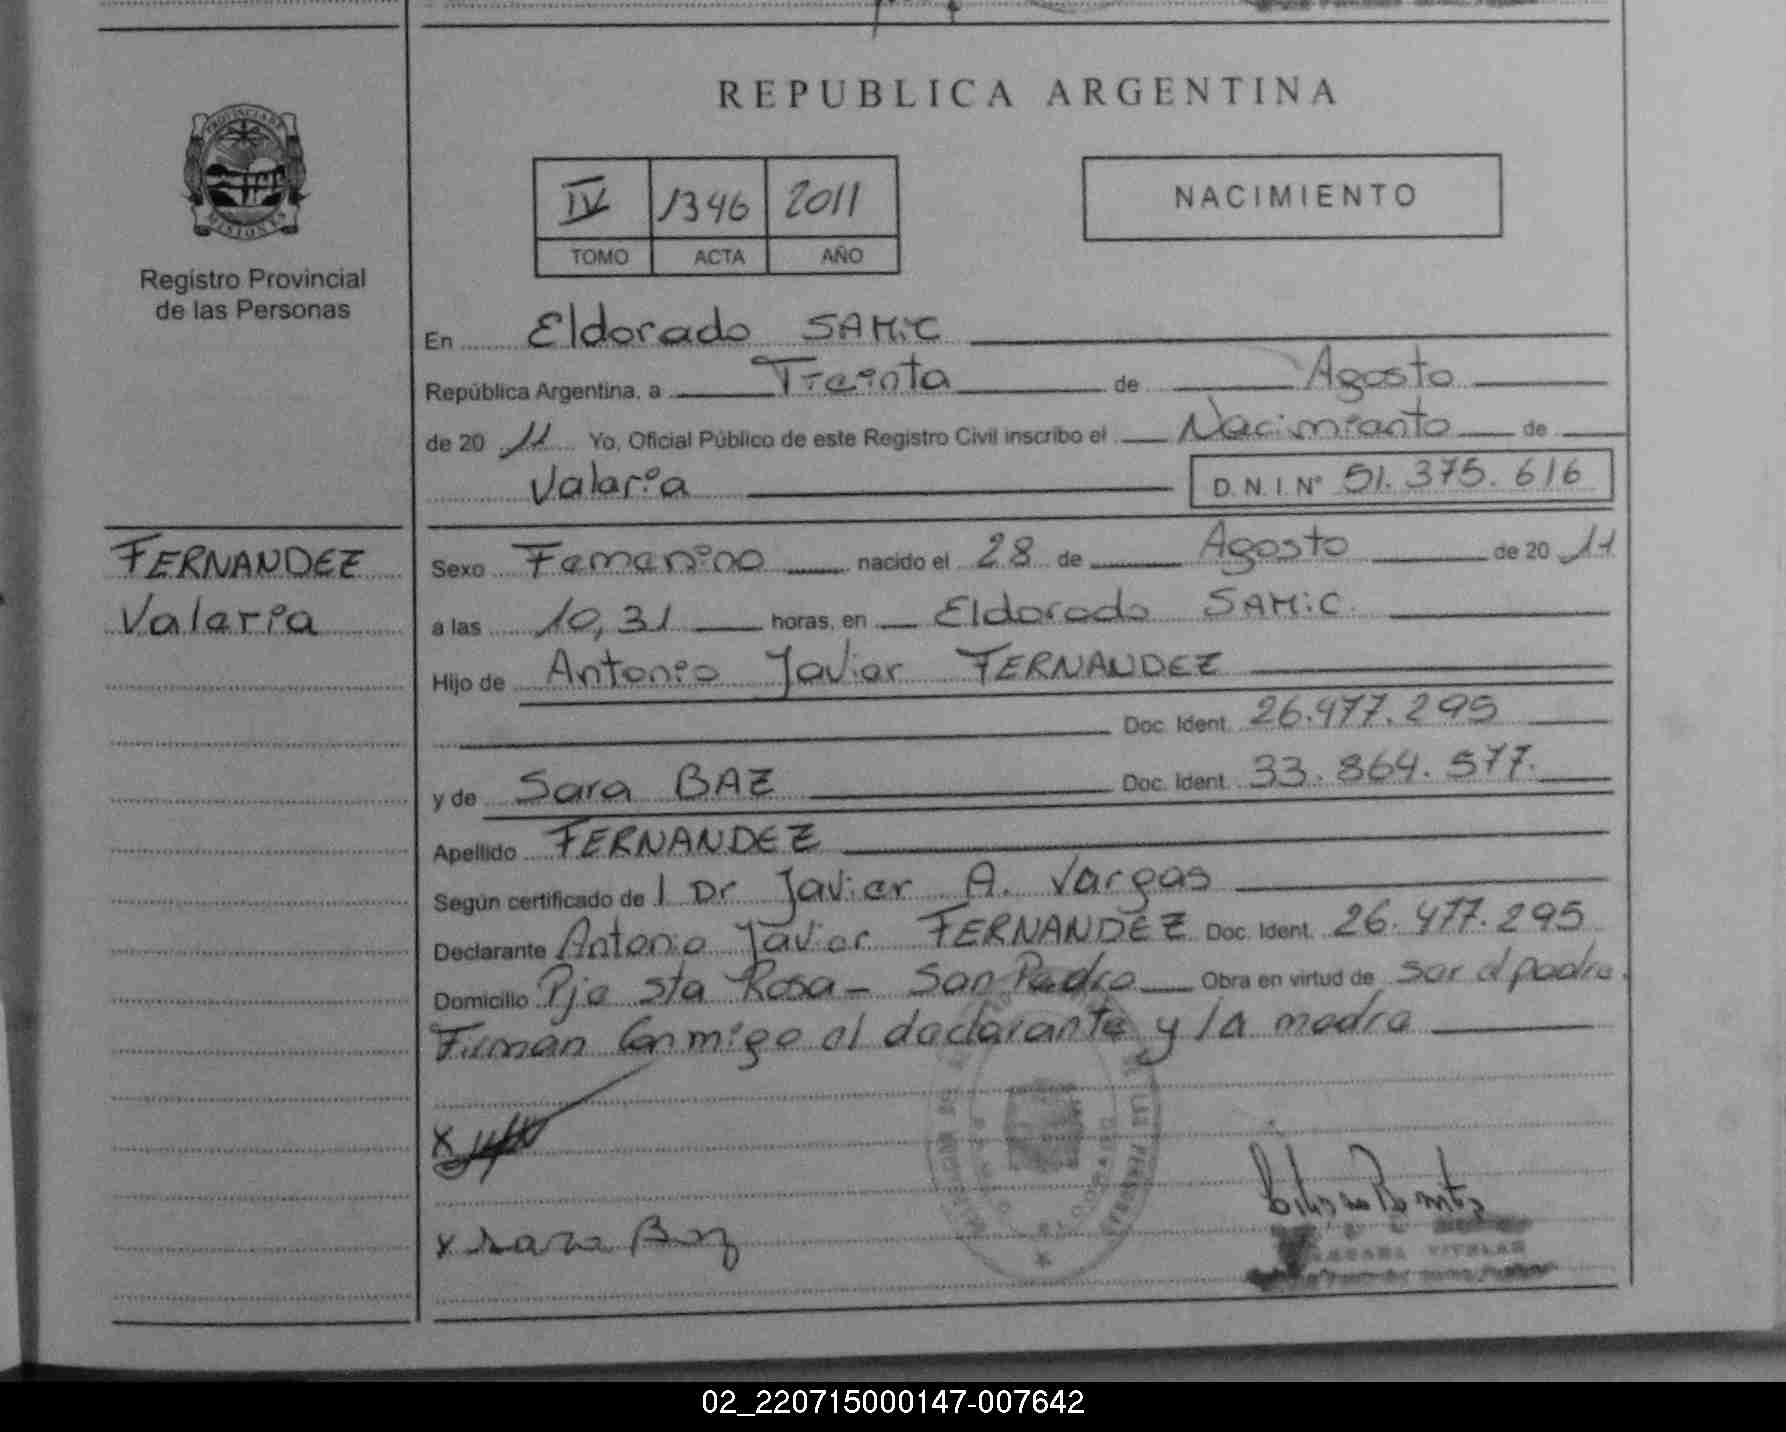 REPUBLICA ARGENTINA
PROVINCIA DE
MISIONES
Registro Provincial
de las Personas
IV 1346 2011
TOMO ACTA AÑO
NACIMIENTO
En Eldorado SAMiC
República Argentina, a Treinta de Agosto
de 20 11 Yo, Oficial Público de este Registro Civil inscribo el Nacimiento de
Valeria D.N.I. Nº 51.375.616
FERNANDEZ
Valeria
Sexo Femenino nacido el 28 de Agosto de 20 11
a las 10,31 horas, en Eldorado SAMiC.
Hijo de Antonio Javier FERNANDEZ
Doc. Ident. 26.477.295
y de Sara BAEZ Doc. Ident. 33.864.577.
Apellido FERNANDEZ
Según certificado de l Dr Javier A. Vargas
Declarante Antonio Javier FERNANDEZ Doc. Ident. 26.477.295
Domicilio Pje sta Rosa - San Pedro Obra en virtud de ser el padre.
Firman Conmigo el declarante y la madre
x
x Sara
02_220715000147-007642